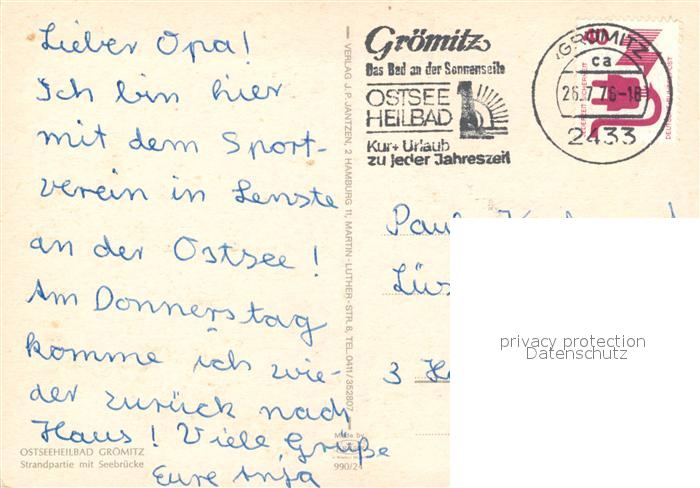 Lieber Opa!
Ich bin hier
mit dem Sport-
verein in Lenste
an der Ostsee!
Am Donnerstag
komme ich wie-
der zurück nach
Haus! Viele Grüße
Eure Anja
OSTSEEHEILBAD GRÖMITZ
Strandpartie mit Seebrücke
990/24
VERLAG J. P. JANTZEN, 2 HAMBURG 11, MARTIN-LUTHER-STR. 8, TEL. 0411/352807
Grömitz
Das Bad an der Sonnenseite
OSTSEE
HEILBAD
Kur + Urlaub
zu jeder Jahreszeit
GRÖMITZ
ca
26.7.76-18
2433
40
DEUTSCHE BUNDESPOST
Paul
Lüs
3 Ha
privacy protection
Datenschutz